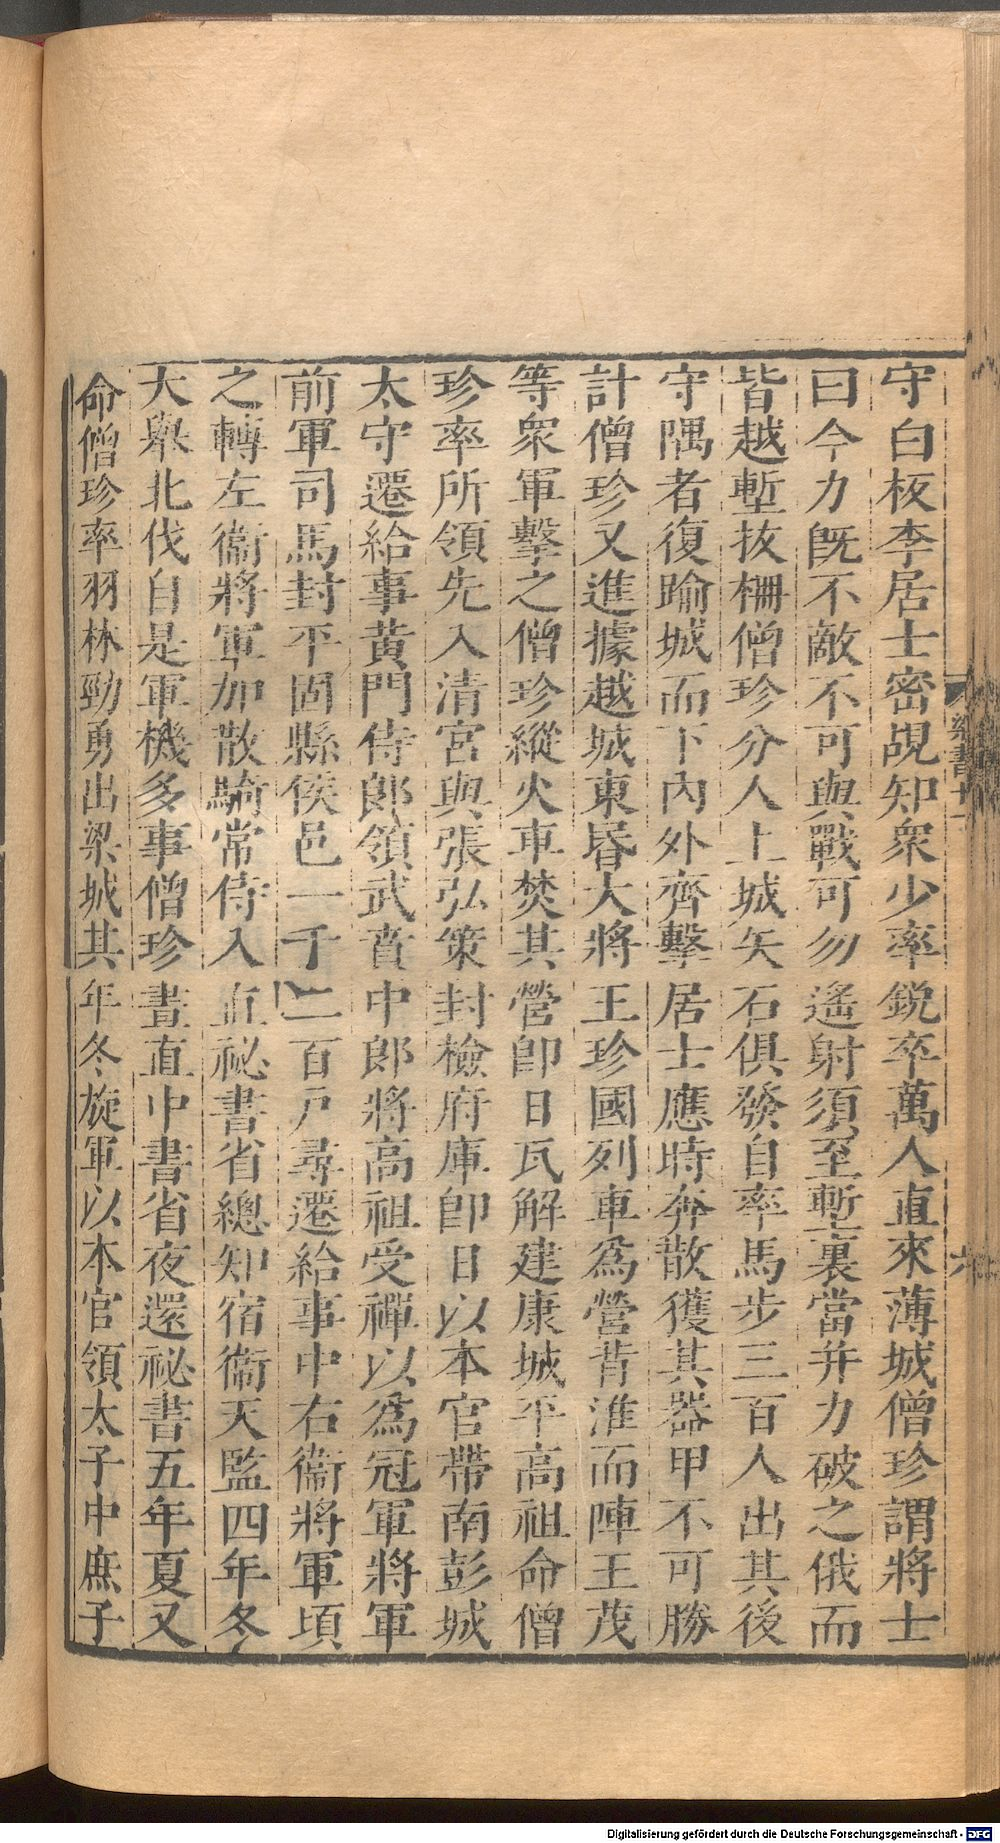 守白板李居士密覘知衆少率銳卒萬人直來薄城僧珍謂將士
曰今力旣不敵不可與戰可勿遙射須至塹裏當并力破之俄而
皆越塹拔柵僧珍分人上城矢石俱發自率馬步三百人出其後
守隅者復踰城而下內外齊擊居士應時奔散獲其器甲不可勝
計僧珍又進據越城東昬大將王珍國列車爲營背淮而陣王茂
等衆軍擊之僧珍縱火車焚其營卽日瓦解建康城平高祖命僧
珍率所領先入清宮與張弘策封檢府庫卽日以本官帶南彭城
太守遷給事黃門侍郎領武賁中郎將高祖受禪以爲冠軍將軍
前軍司馬封平固縣侯邑一千二百戶尋遷給事中右衞將軍頃
之轉左衞將軍加散騎常侍入直祕書省總知宿衞天監四年冬
大舉北伐自是軍機多事僧珍晝直中書省夜還祕書五年夏又
命僧珍率羽林勁勇出梁城其年冬旋軍以本官領太子中庶子
梁書十一
六
Digitalisierung gefördert durch die Deutsche Forschungsgemeinschaft - DFG